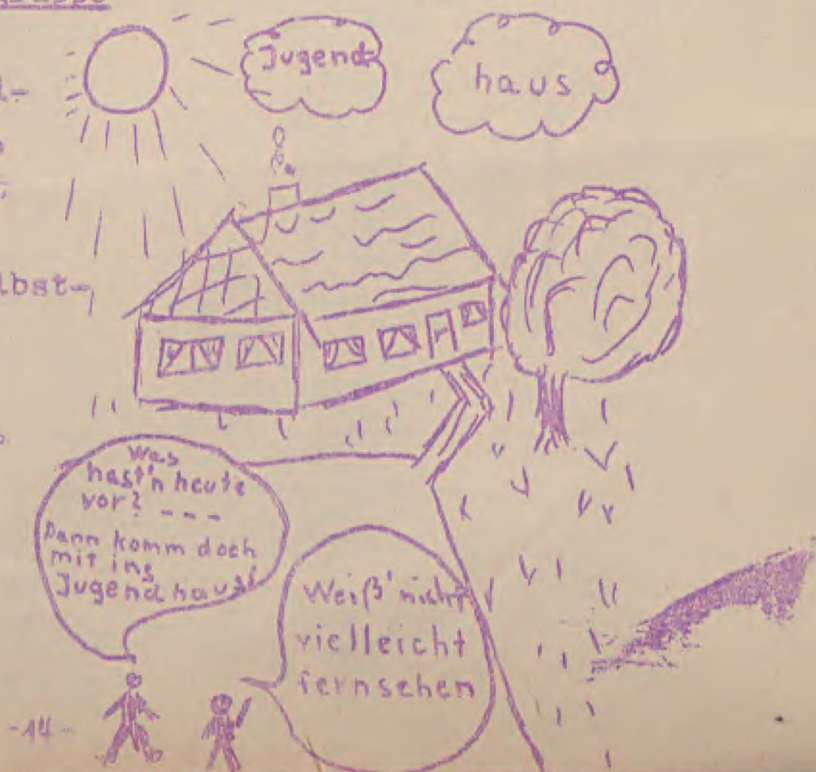 Jugend
haus
lbst-
Was
hast'n heute
vor? ---
Dann komm doch
mit ins
Jugendhaus!
Weiß' nicht
vielleicht
fernsehen
-14-